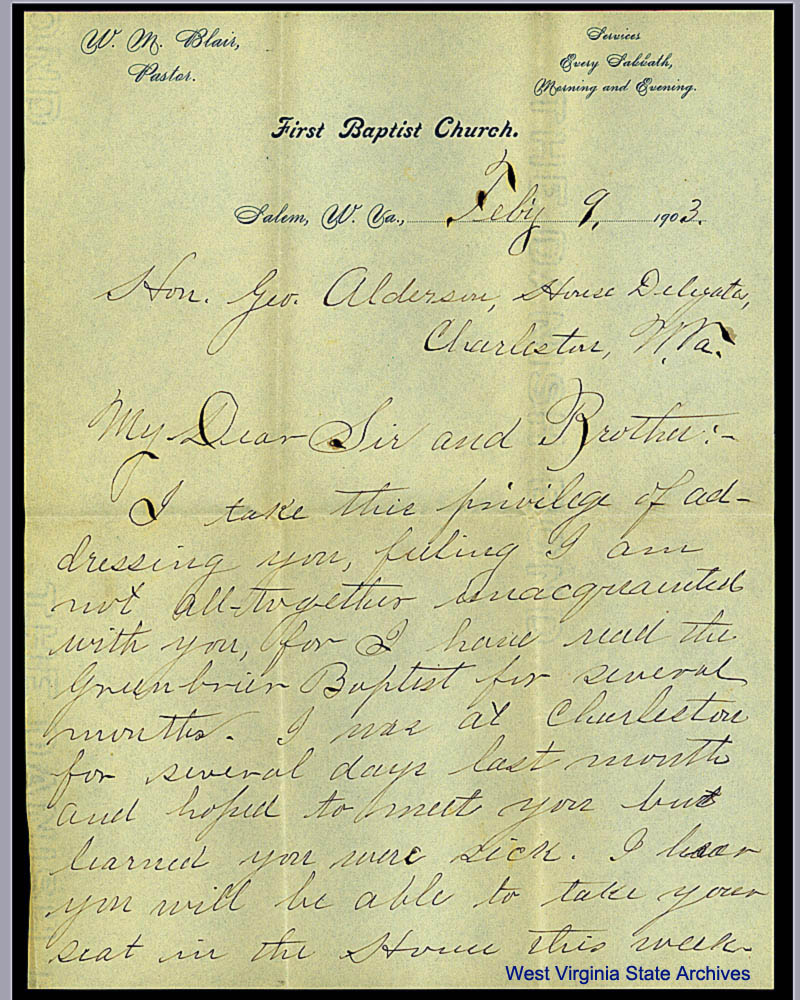 W. M. Blair,
Pastor.
Services
Every Sabbath,
Morning and Evening.
First Baptist Church.
Salem, W. Va., Feby 9, 1903.
Hon. Geo. Alderson, House Delegates,
Charleston, W. Va.
My Dear Sir and Brother:-
I take this privilege of ad-
dressing you, feeling I am
not all-together unacquainted
with you, for I have read the
Greenbrier Baptist for several
months. I was at Charleston
for several days last month
and hoped to meet you but
learned you were sick. I hear
you will be able to take your
seat in the House this week.
West Virginia State Archives